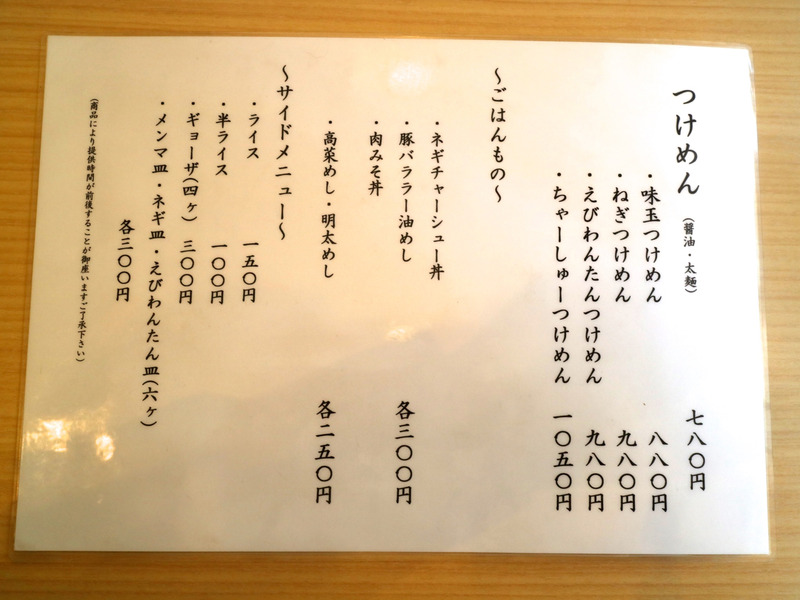 つけめん (醤油・太麺) 七八〇円
・味玉つけめん 八八〇円
・ねぎつけめん 九八〇円
・えびわんたんつけめん 九八〇円
・ちゃーしゅーつけめん 一〇五〇円
～ごはんもの～
・ネギチャーシュー丼
・豚バララー油めし 各三〇〇円
・肉みそ丼
・高菜めし・明太めし 各二五〇円
～サイドメニュー～
・ライス 一五〇円
・半ライス 一〇〇円
・ギョーザ(四ヶ) 三〇〇円
・メンマ皿・ネギ皿・えびわんたん皿(六ヶ)
各三〇〇円
(商品により提供時間が前後することが御座いますご了承下さい)